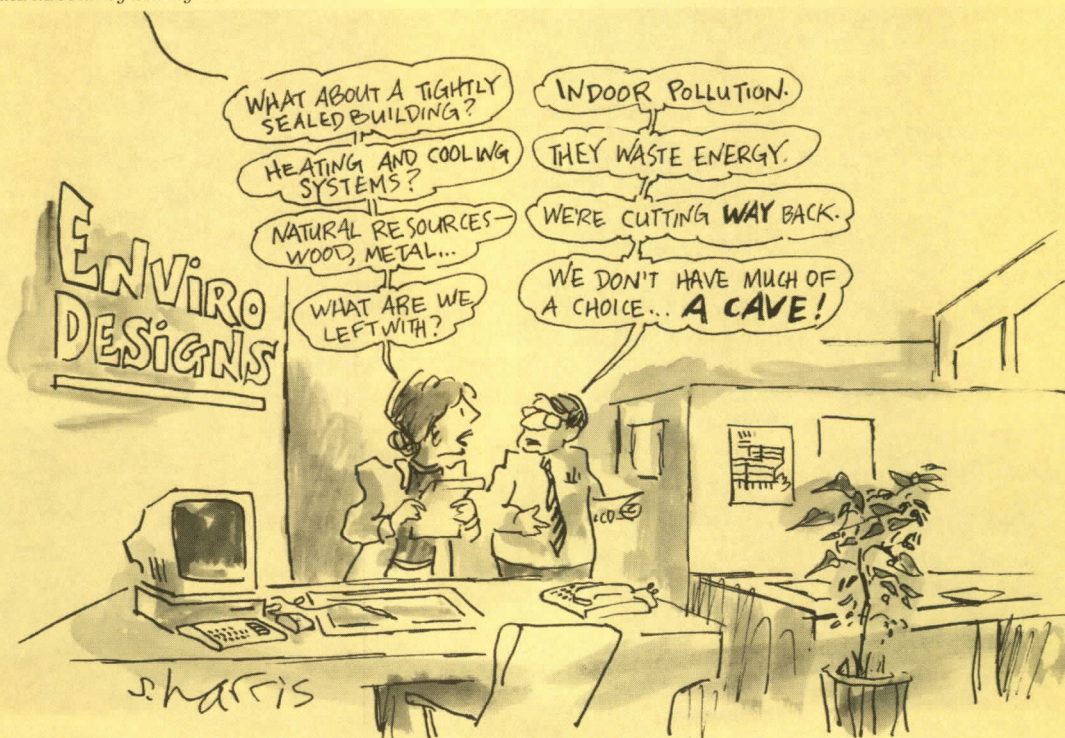 WHAT ABOUT A TIGHTLY
SEALED BUILDING?
INDOOR POLLUTION.
HEATING AND COOLING
SYSTEMS?
THEY WASTE ENERGY.
NATURAL RESOURCES—
WOOD, METAL...
WE'RE CUTTING WAY BACK.
WHAT ARE WE
LEFT WITH?
WE DON'T HAVE MUCH OF
A CHOICE... A CAVE!
ENVIRO
DESIGNS
s.harris